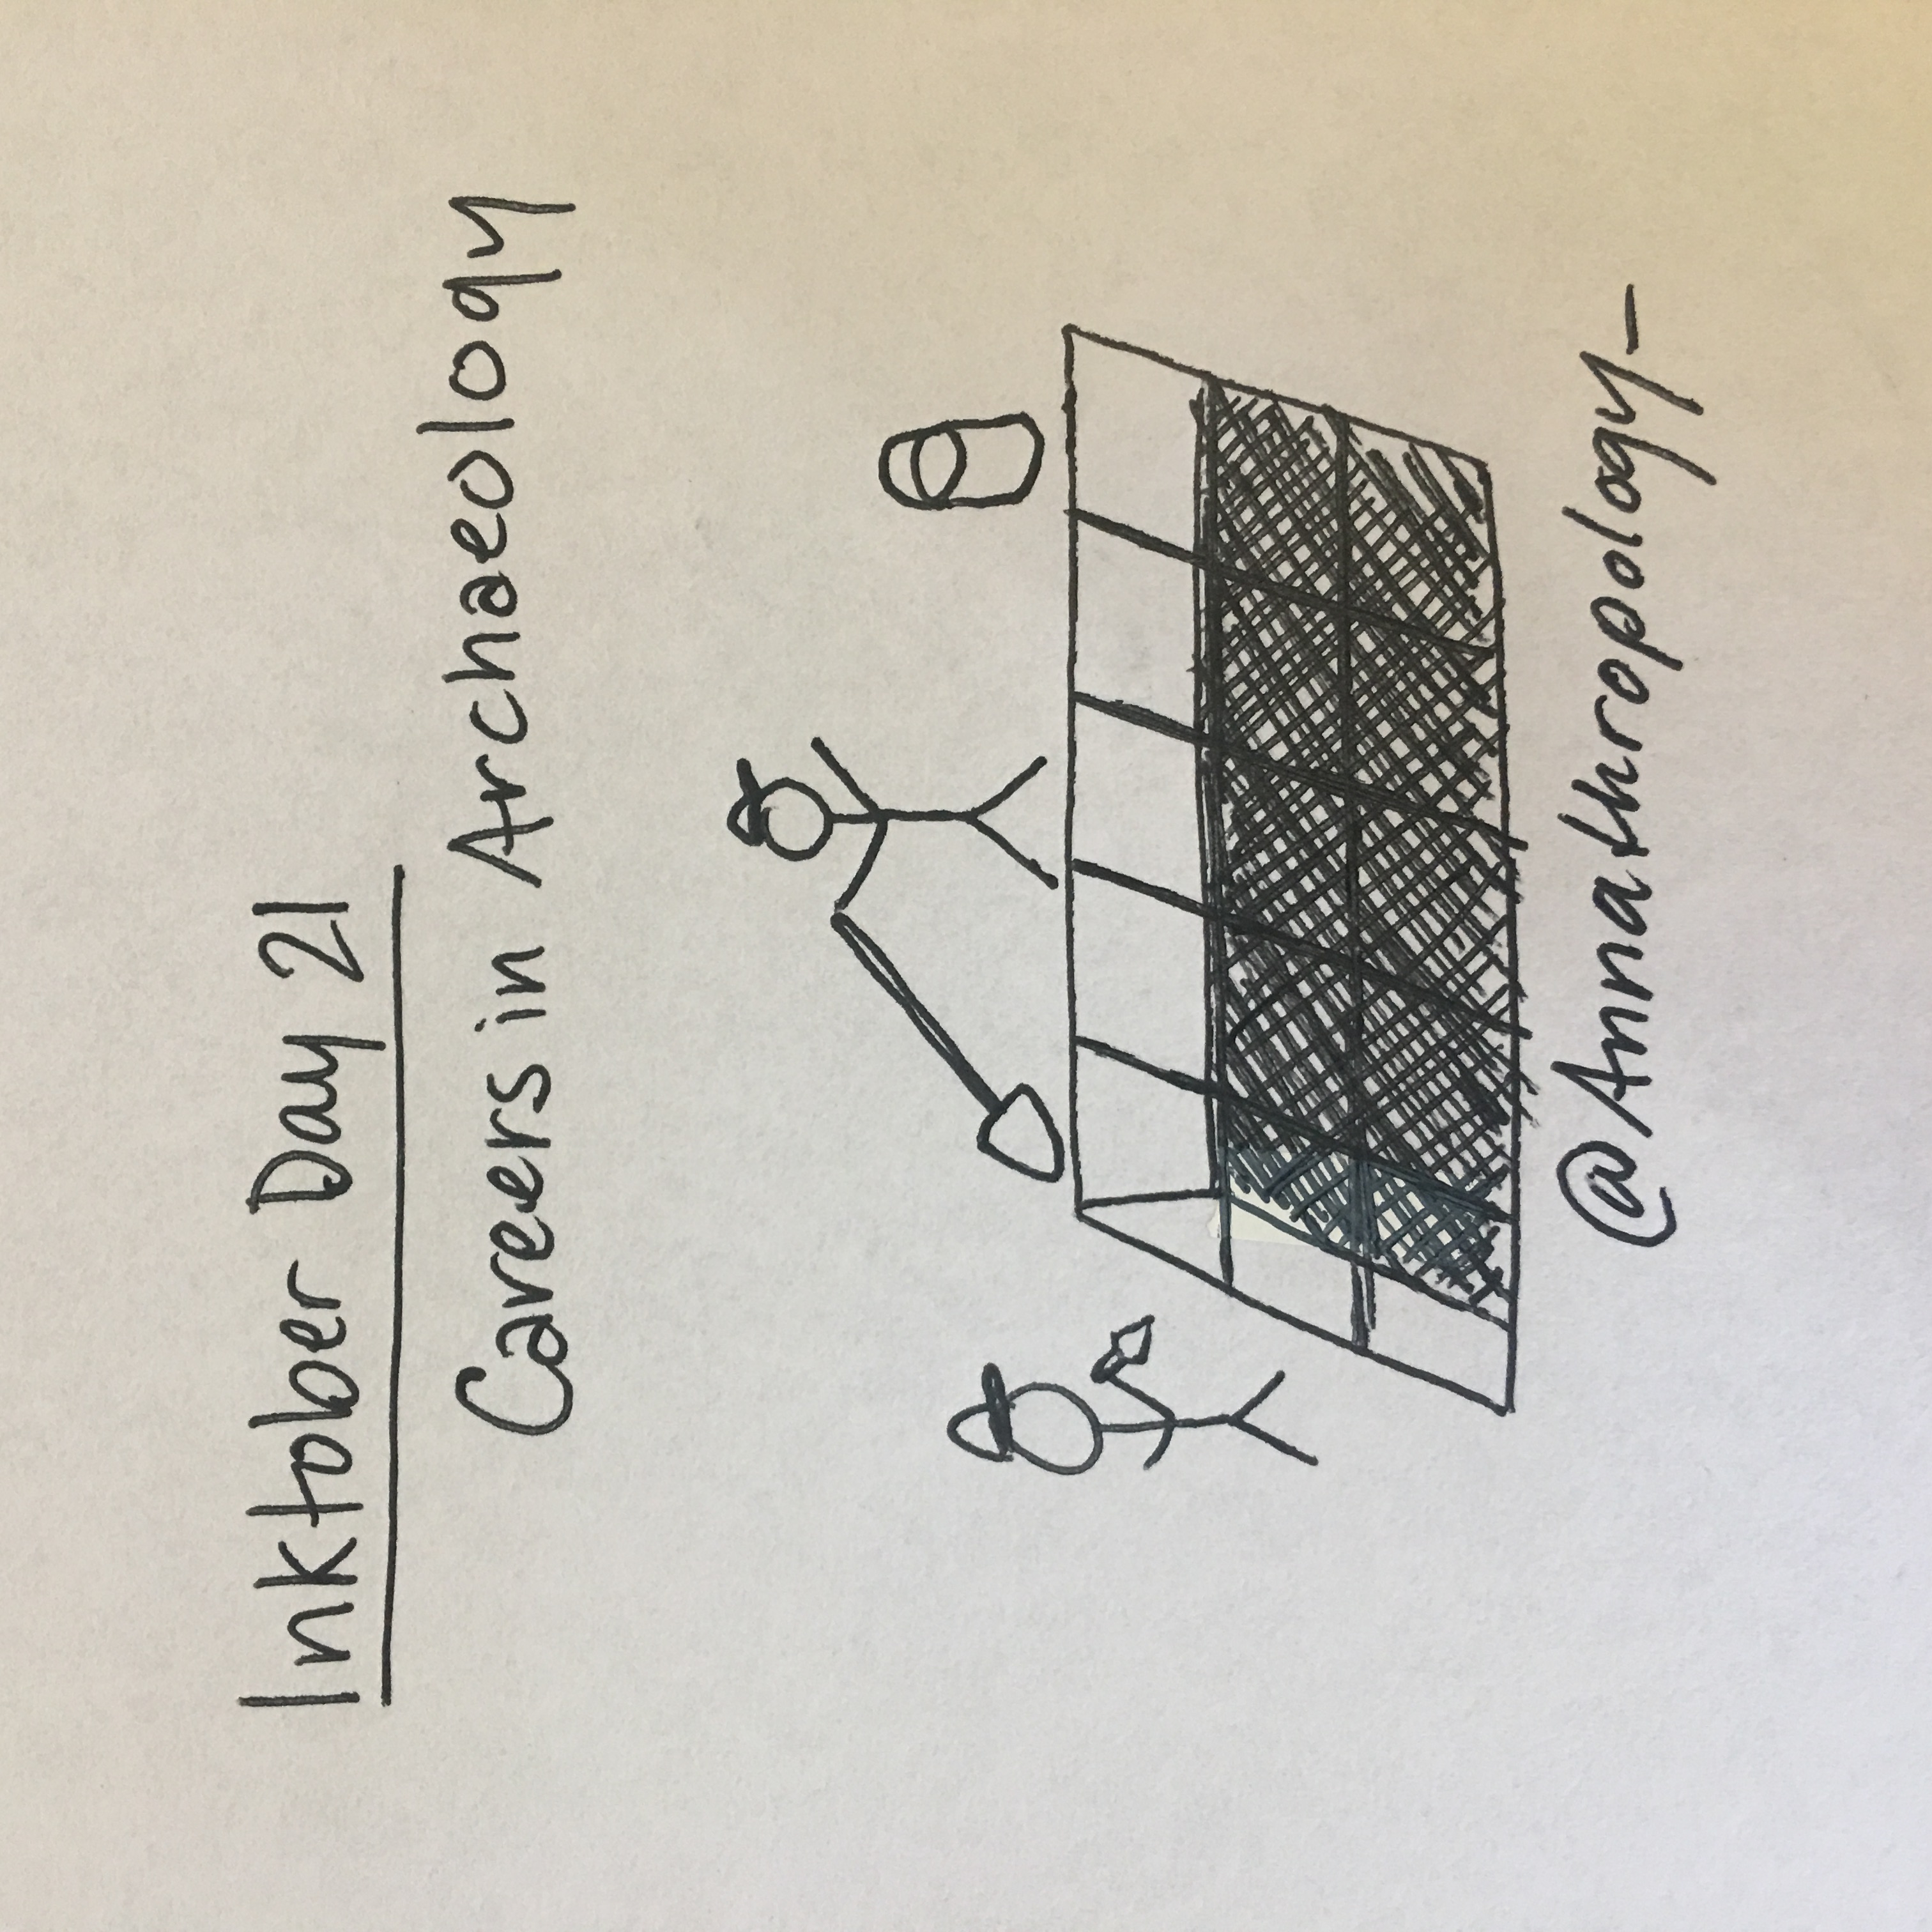 Inktober Day 21
Careers in Archaeology
@Annathropology_